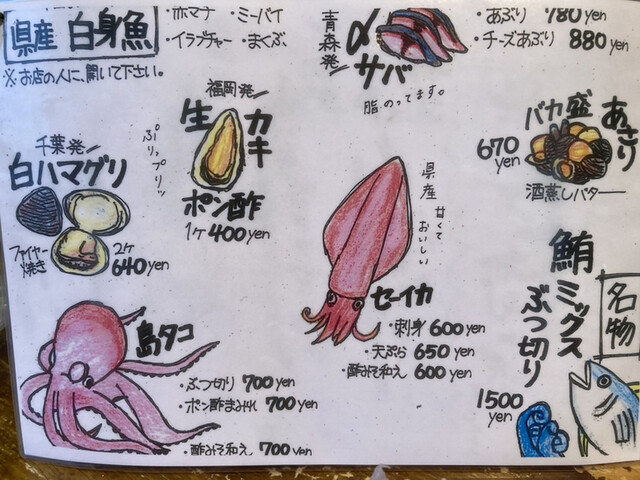 県産 白身魚
・赤マチ ・ミーバイ
・イラブチャー ・まくぶ
※お店の人に、聞いて下さい。
青森発!
〆サバ
・あぶり 780yen
・チーズあぶり 880yen
脂のってます。
福岡発!
生カキ
ポン酢
1ヶ 400yen
ぷりっプリッ
千葉発!
白ハマグリ
ファイヤー焼き
2ヶ
640yen
県産
甘くておいしい
セーイカ
・刺身 600yen
・天ぷら 650yen
・酢みそ和え 600yen
あさり
バカ盛
670yen
酒蒸しバター
島タコ
・ぶつ切り 700yen
・ポン酢まみれ 700yen
・酢みそ和え 700yen
名物
鮪ミックス
ぶつ切り
1500yen